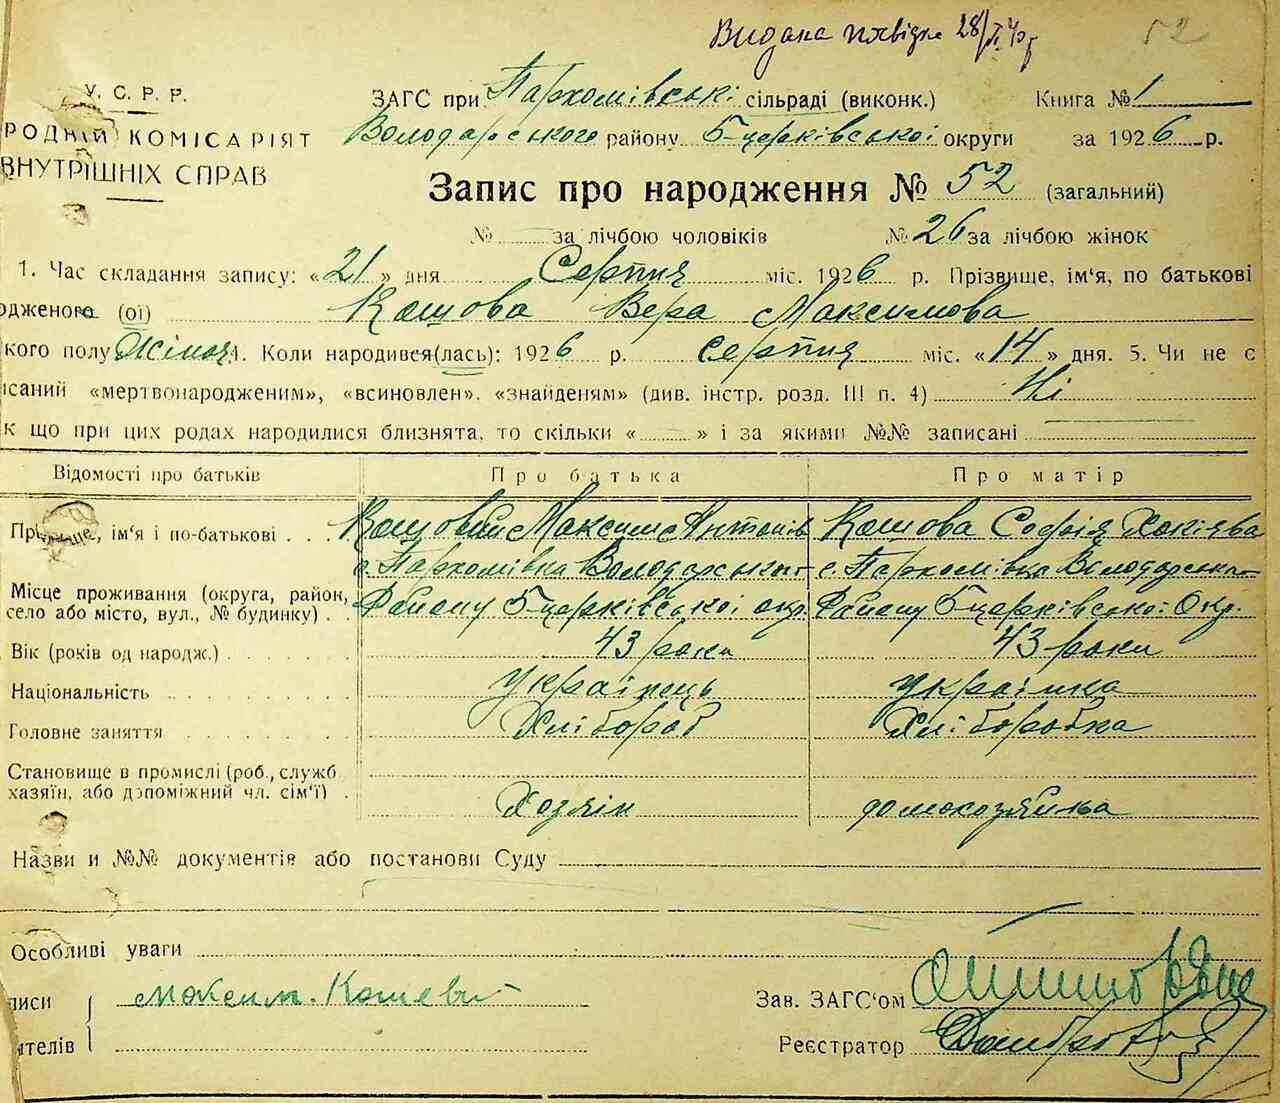 Видана
52
У. С. Р. Р.
РОДНІЙ КОМІСАРІЯТ
ВНУТРІШНІХ СПРАВ
ЗАГС при Пархомівські сільраді (виконк.) Книга № 1
Володарського району Б-церківської округи за 1926 р.
Запис про народження № 52 (загальний)
№ за лічбою чоловіків № 26 за лічбою жінок
1. Час складання запису: «21» дня Серпня міс. 1926 р. Прізвище, ім'я, по батькові
одженого (ої) Кошова Вера Максимова
кого полу Жіноч. Коли народився(лась): 1926 р. Серпня міс. «14» дня. 5. Чи не є
ісаний «мертвонародженим», «всиновлен», «знайденям» (див. інстр. розд. III п. 4) Ні
к що при цих родах народилися близнята, то скільки « » і за якими №№ записані
Відомості про батьків Про батька Про матір
Прізвище, ім'я і по-батькові Кошовий Максим Антонів Кошова Софія
с. Пархомівка Володарськ. с. Пархомівка Володарськ.
Місце проживання (округа, район, село або місто, вул., № будинку) Району Б-церківської окр. Району Б-церківської Окр.
Вік (років од народж.) 43 роки 43 роки
Національність Українець Українка
Головне заняття Хлібороб Хліборобка
Становище в промислі (роб., служб
хазяїн, або допоміжний чл. сім'ї) Хозяїн домохозяйка
Назви и №№ документів або постанови Суду
Особливі уваги
писи Максим Кошевий
ителів
Зав. ЗАГС'ом
Реєстратор